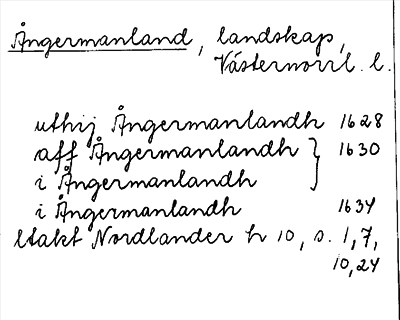 Ångermanland, landskap,
Västernorrl. l.
uthij Ångermanlandh 1628
aff Ångermanlandh } 1630
i Ångermanlandh
i Ångermanlandh 1634
ltakt Nordlander h 10, s. 1, 7,
10, 24